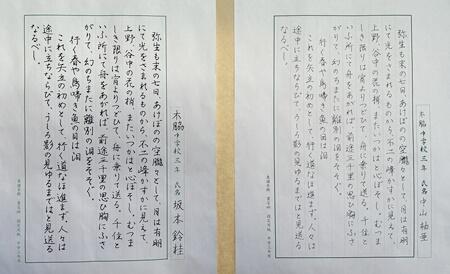 木脇中学校三年 氏名 中山 柚亜
弥生も末の七日、あけぼのの空朧々として、月は有明
にて光をさまれるものから、不二の峰かすかに見えて、
上野・谷中の花の梢、またいつかはと心ぼそし。むつま
しき限りは宵よりつどひて、舟に乗りて送る。千住と
いふ所にて舟をあがれば、前途三千里の思ひ胸にふさ
がりて、幻のちまたに離別の泪をそそぐ。
行く春や鳥啼き魚の目は泪
これを矢立の初めとして、行く道なほ進まず。人々は
途中に立ちならびて、うしろ影の見ゆるまではと見送る
なるべし。
木脇中学校三年 氏名 坂本 鈴桂
弥生も末の七日、あけぼのの空朧々として、月は有明
にて光をさまれるものから、不二の峰かすかに見えて、
上野・谷中の花の梢、またいつかはと心ぼそし。むつま
しき限りは宵よりつどひて、舟に乗りて送る。千住と
いふ所にて舟をあがれば、前途三千里の思ひ胸にふさ
がりて、幻のちまたに離別の泪をそそぐ。
行く春や鳥啼き魚の目は泪
これを矢立の初めとして、行く道なほ進まず。人々は
途中に立ちならびて、うしろ影の見ゆるまではと見送る
なるべし。